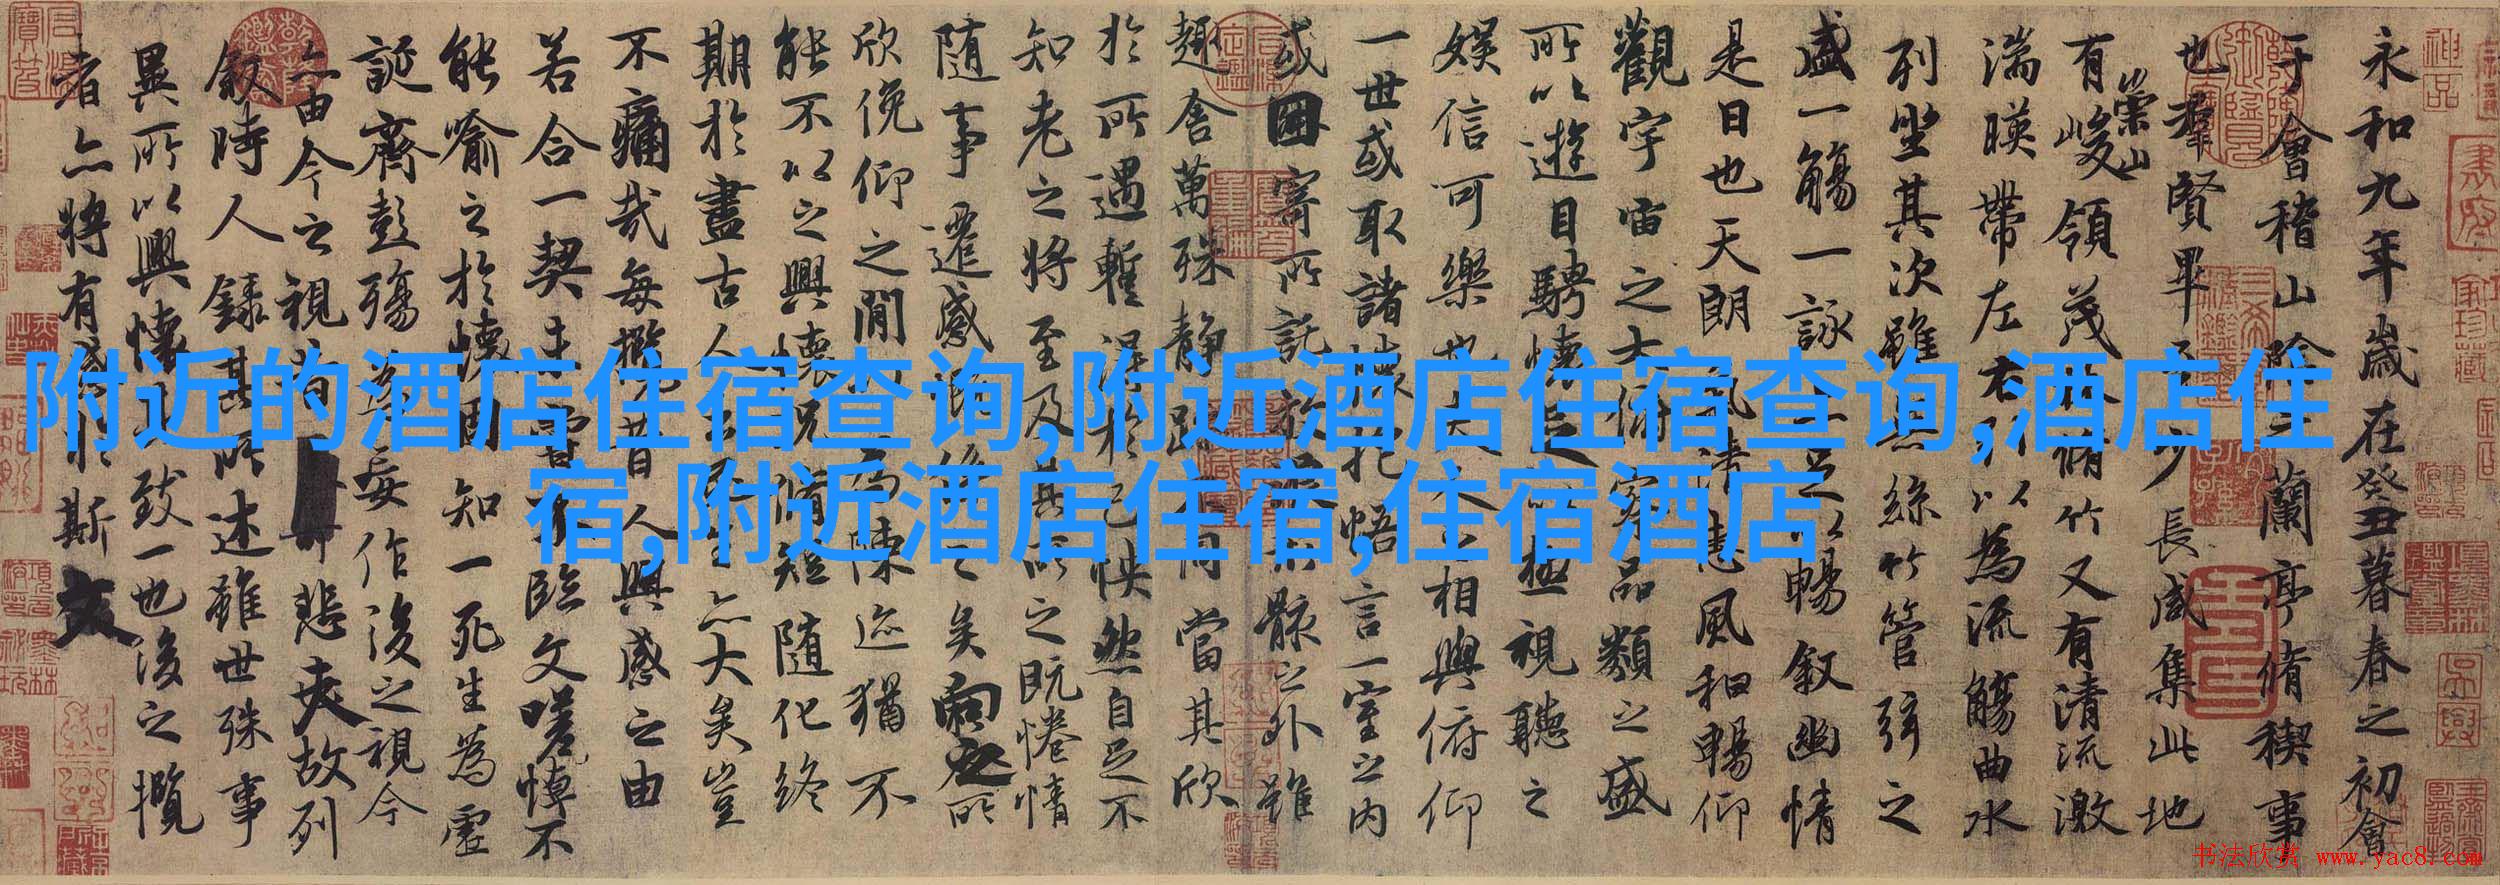 附近的酒店住宿查询,附近酒店住宿查询,酒店住
宿,附近酒店住宿,住宿酒店
永和九年歲在癸丑暮春之初會
于會稽山陰之蘭亭脩稧事
也羣賢畢至少長咸集此地
有崇山峻領茂林脩竹又有清流激
湍暎帶左右引以為流觴曲水
列坐其次雖無絲竹管弦之
盛一觴一詠亦足以暢敘幽情
是日也天朗氣清惠風和暢仰
觀宇宙之大俯察品類之盛
所以遊目騁懷足以極視聽之
娛信可樂也夫人之相與俯仰
一世或取諸懷抱悟言一室之內
或因寄所託放浪形骸之外雖
趣舍萬殊靜躁不同當其欣
於所遇暫得於己怏然自足不
知老之將至及其所之既惓情
隨事遷感慨係之矣向之所
欣俛仰之閒以為陳迹猶不
能不以之興懷況脩短隨化終
期於盡古人云死生亦大矣豈
不痛哉每攬昔人興感之由
若合一契未嘗不臨文嗟悼不
能喻之於懷固知一死生為虛
誕齊彭殤為妄作後之視今
亦由今之視昔悲夫故列
敘時人錄其所述雖世殊事
異所以興懷其致一也後之攬
者亦將有感於斯文
书法欣赏 www.yac8.com